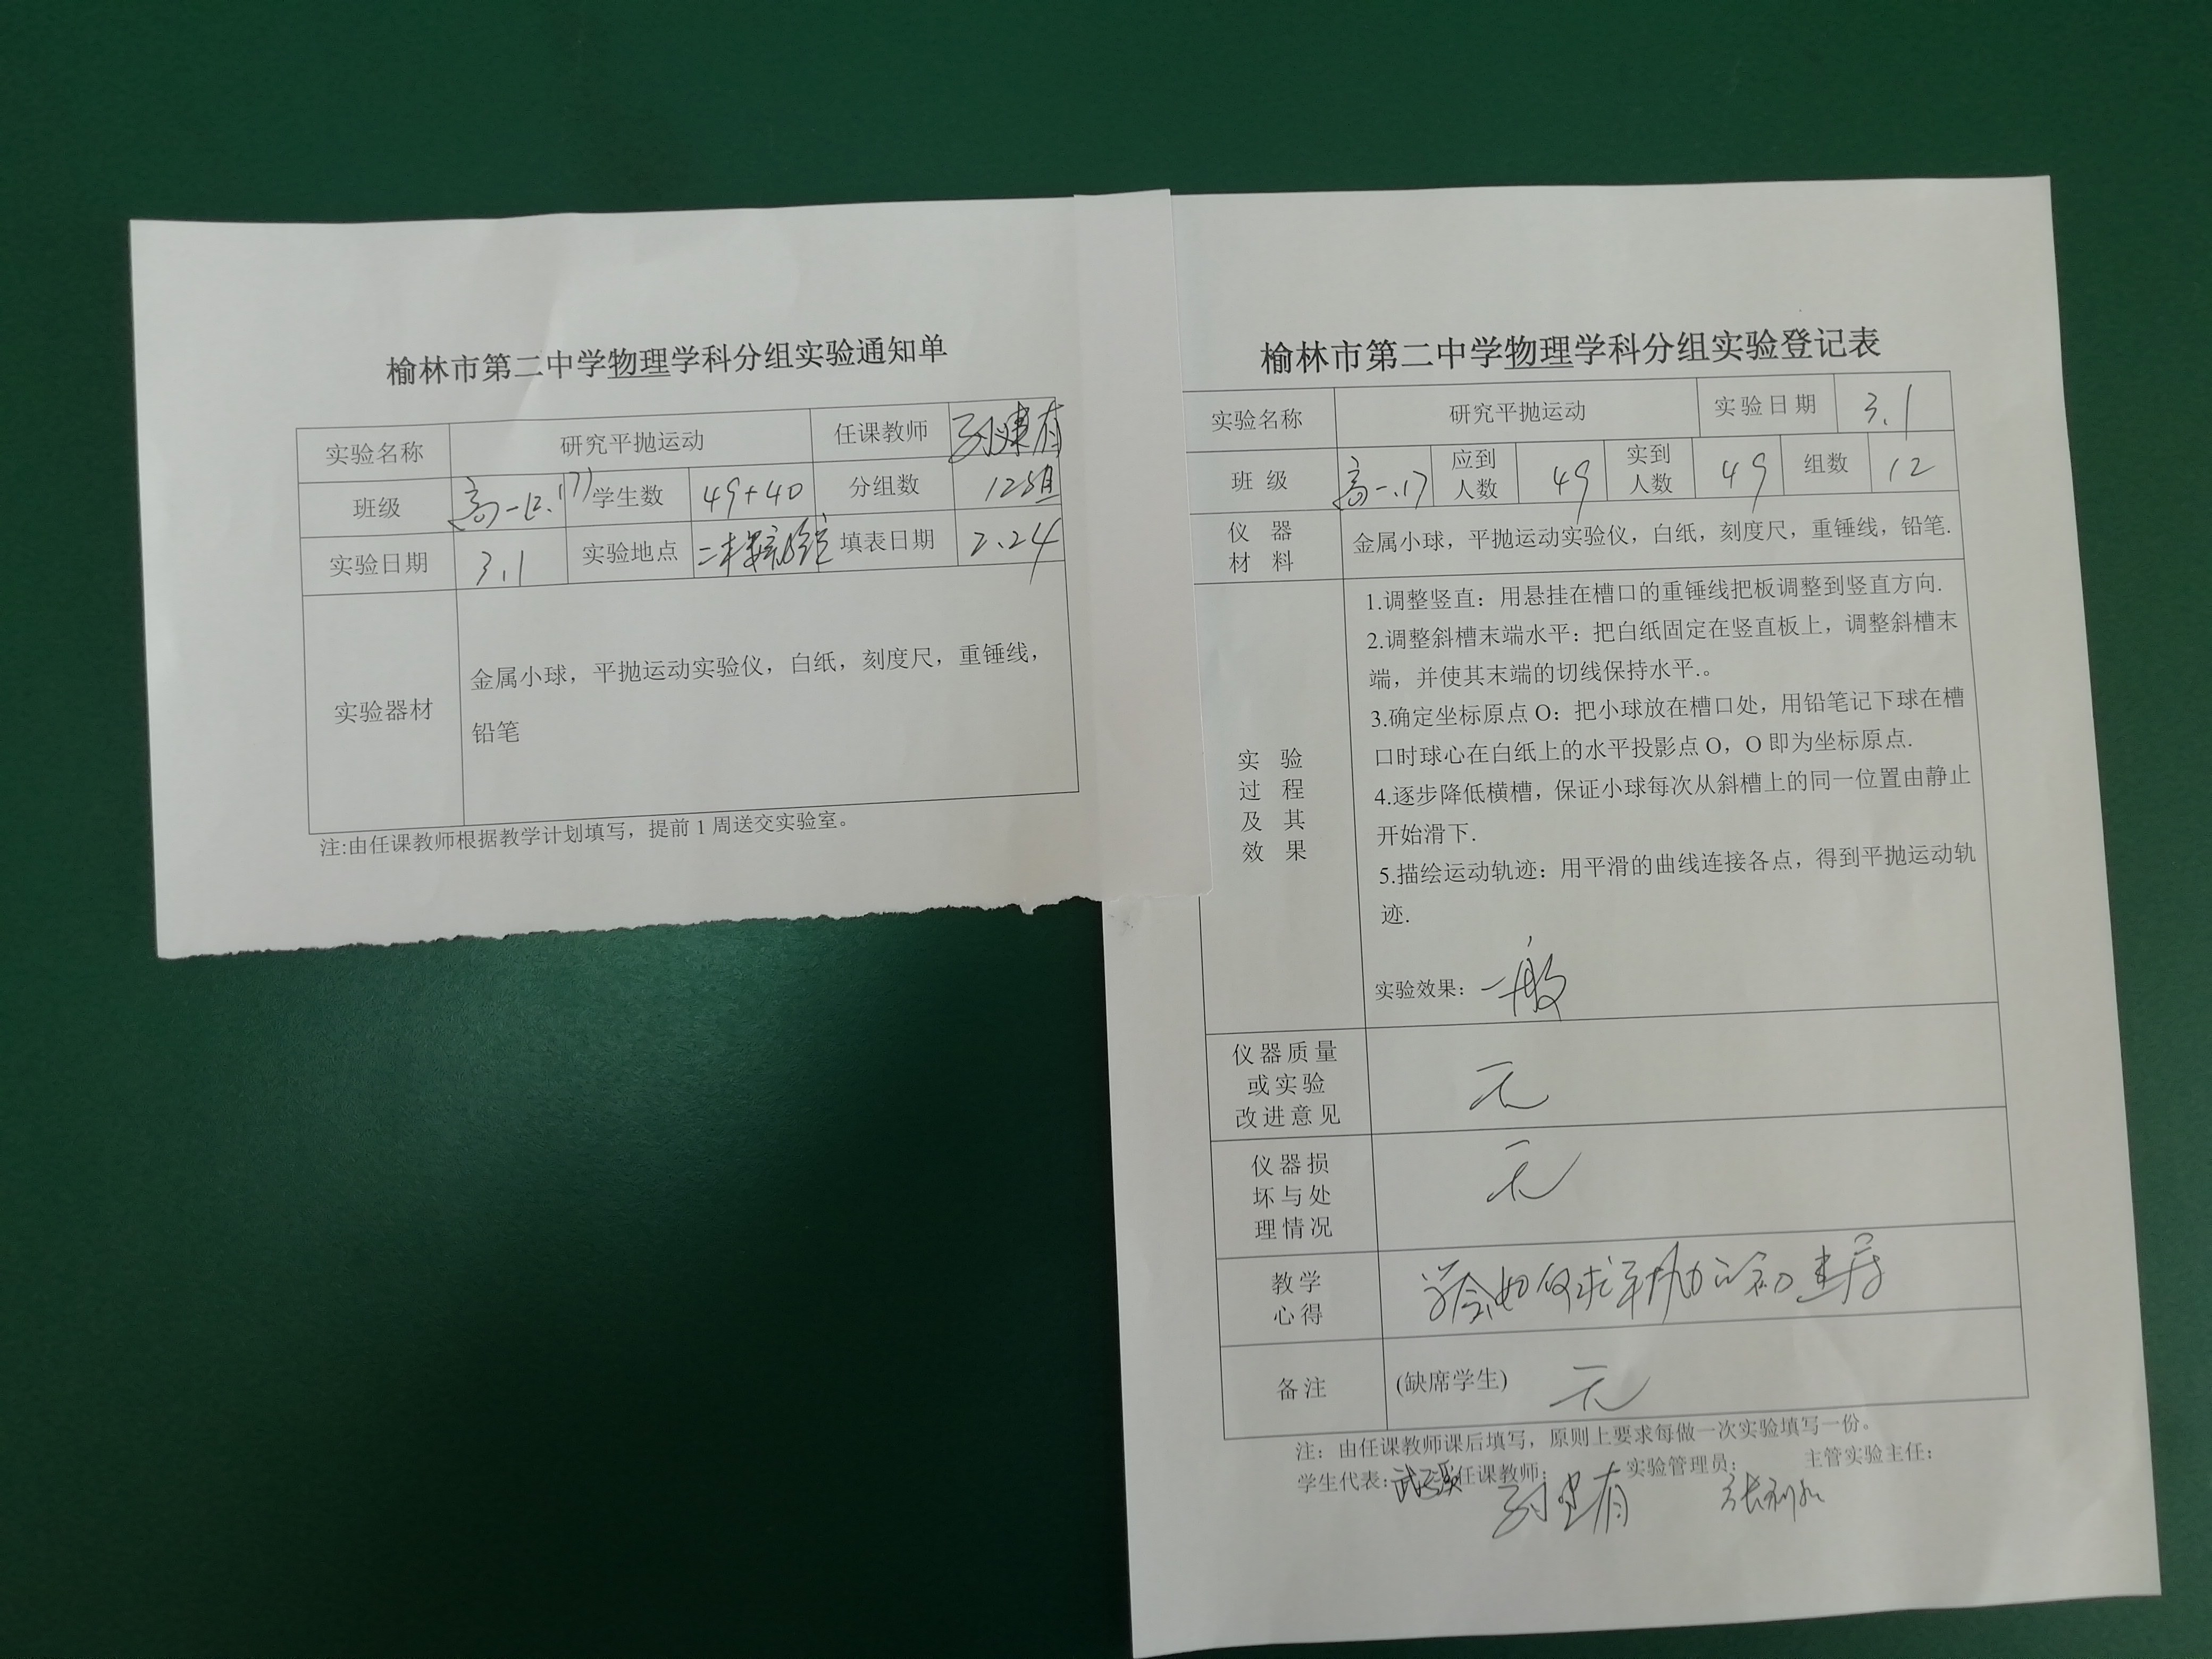 榆林市第二中学物理学科分组实验通知单
实验名称 研究平抛运动 任课教师
班级 学生数 49+40 分组数 12组
实验日期 3.1 实验地点 填表日期 2.24
实验器材
金属小球，平抛运动实验仪，白纸，刻度尺，重锤线，
铅笔
注:由任课教师根据教学计划填写，提前1周送交实验室。
榆林市第二中学物理学科分组实验登记表
实验名称 研究平抛运动 实验日期 3.1
班级 高一.17 应到人数 49 实到人数 49 组数 12
仪器材料 金属小球，平抛运动实验仪，白纸，刻度尺，重锤线，铅笔.
实验过程及其效果
1.调整竖直：用悬挂在槽口的重锤线把板调整到竖直方向.
2.调整斜槽末端水平：把白纸固定在竖直板上，调整斜槽末
端，并使其末端的切线保持水平.。
3.确定坐标原点O：把小球放在槽口处，用铅笔记下球在槽
口时球心在白纸上的水平投影点O，O即为坐标原点.
4.逐步降低横槽，保证小球每次从斜槽上的同一位置由静止
开始滑下.
5.描绘运动轨迹：用平滑的曲线连接各点，得到平抛运动轨
迹.
实验效果：一般
仪器质量
或实验
改进意见
无
仪器损
坏与处
理情况
无
教学
心得
学会如何求平抛的初速度
备注 (缺席学生) 无
注：由任课教师课后填写，原则上要求每做一次实验填写一份。
学生代表： 任课教师： 实验管理员： 主管实验主任：